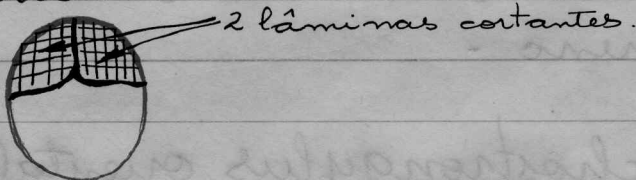 2 lâminas cortantes.